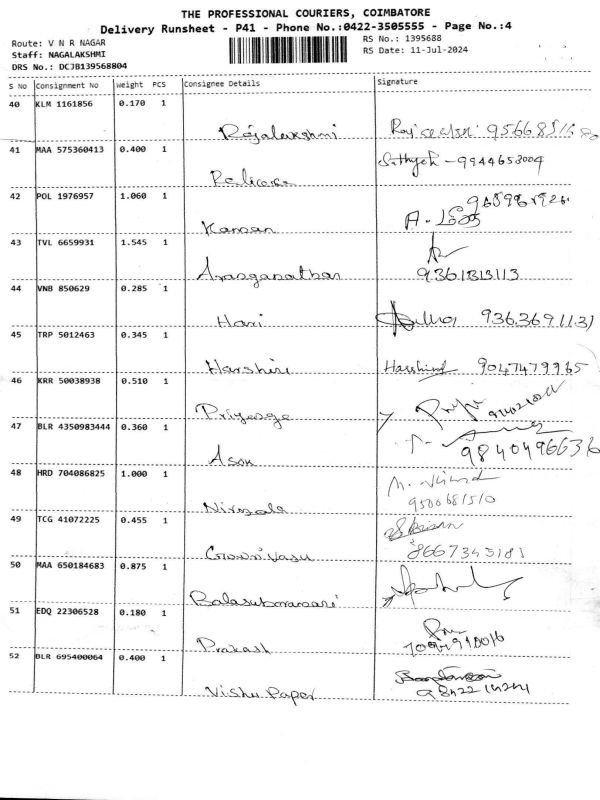 THE PROFESSIONAL COURIERS, COIMBATORE
Delivery Runsheet - P41 - Phone No.:0422-3505555 - Page No.:4
Route: V N R NAGAR
RS No.: 1395688
Staff: NAGALAKSHMI
RS Date: 11-Jul-2024
DRS No.: DCJB139568804
S No Consignment No Weight PCS Consignee Details Signature
40 KLM 1161856 0.170 1
Rajalakshmi
41 MAA 575360413 0.400 1
Sathyesh - 9944653004
42 POL 1976957 1.060 1
Kannan A.
43 TVL 6659931 1.545 1
Aranganathan 9361313113
44 VNB 850629 0.285 1
Hari 9363691131
45 TRP 5012463 0.345 1
Harshini Harshini 9047479965
46 KRR 50038938 0.510 1
47 BLR 4350983444 0.360 1
Ason 9840496636
48 HRD 704086825 1.000 1
Nirmala 9500681510
49 TCG 41072225 0.455 1
Gowri Vasu 8667343181
50 MAA 650184683 0.875 1
51 EDQ 22306528 0.180 1
Prakash
52 BLR 695400064 0.400 1
Vishu Paper